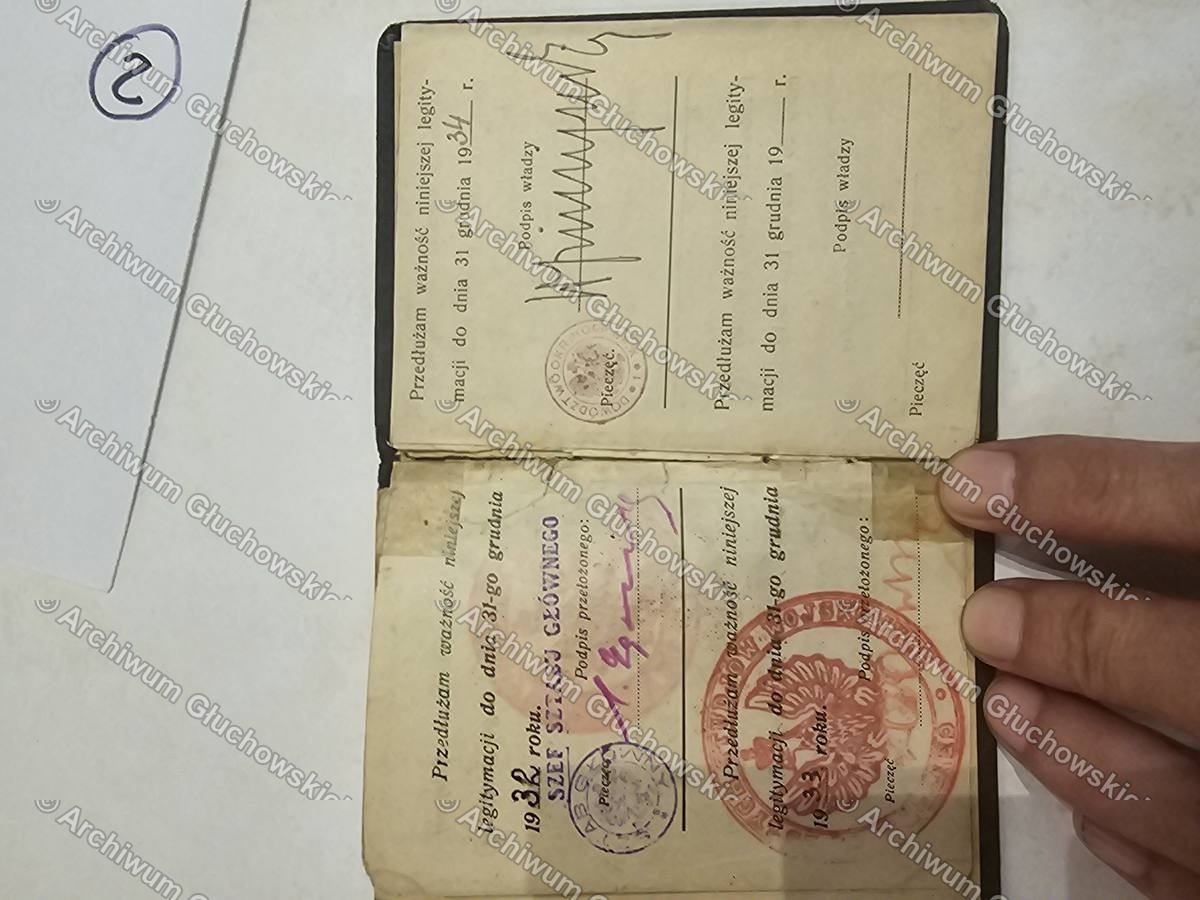 2
Przedłużam ważność niniejszej
legitymacji do dnia 31-go grudnia
1932 roku.
SZEF SZTABU GŁÓWNEGO
Podpis przełożonego:
Pieczęć
Przedłużam ważność niniejszej
legitymacji do dnia 31-go grudnia
1933 roku.
Podpis przełożonego:
Pieczęć
Przedłużam ważność niniejszej legity-
macji do dnia 31 grudnia 1934 r.
Podpis władzy
Pieczęć.
DOWÓDZTWO OKR
Przedłużam ważność niniejszej legity-
macji do dnia 31 grudnia 19___ r.
Podpis władzy
Pieczęć
© Archiwum Głuchowskich